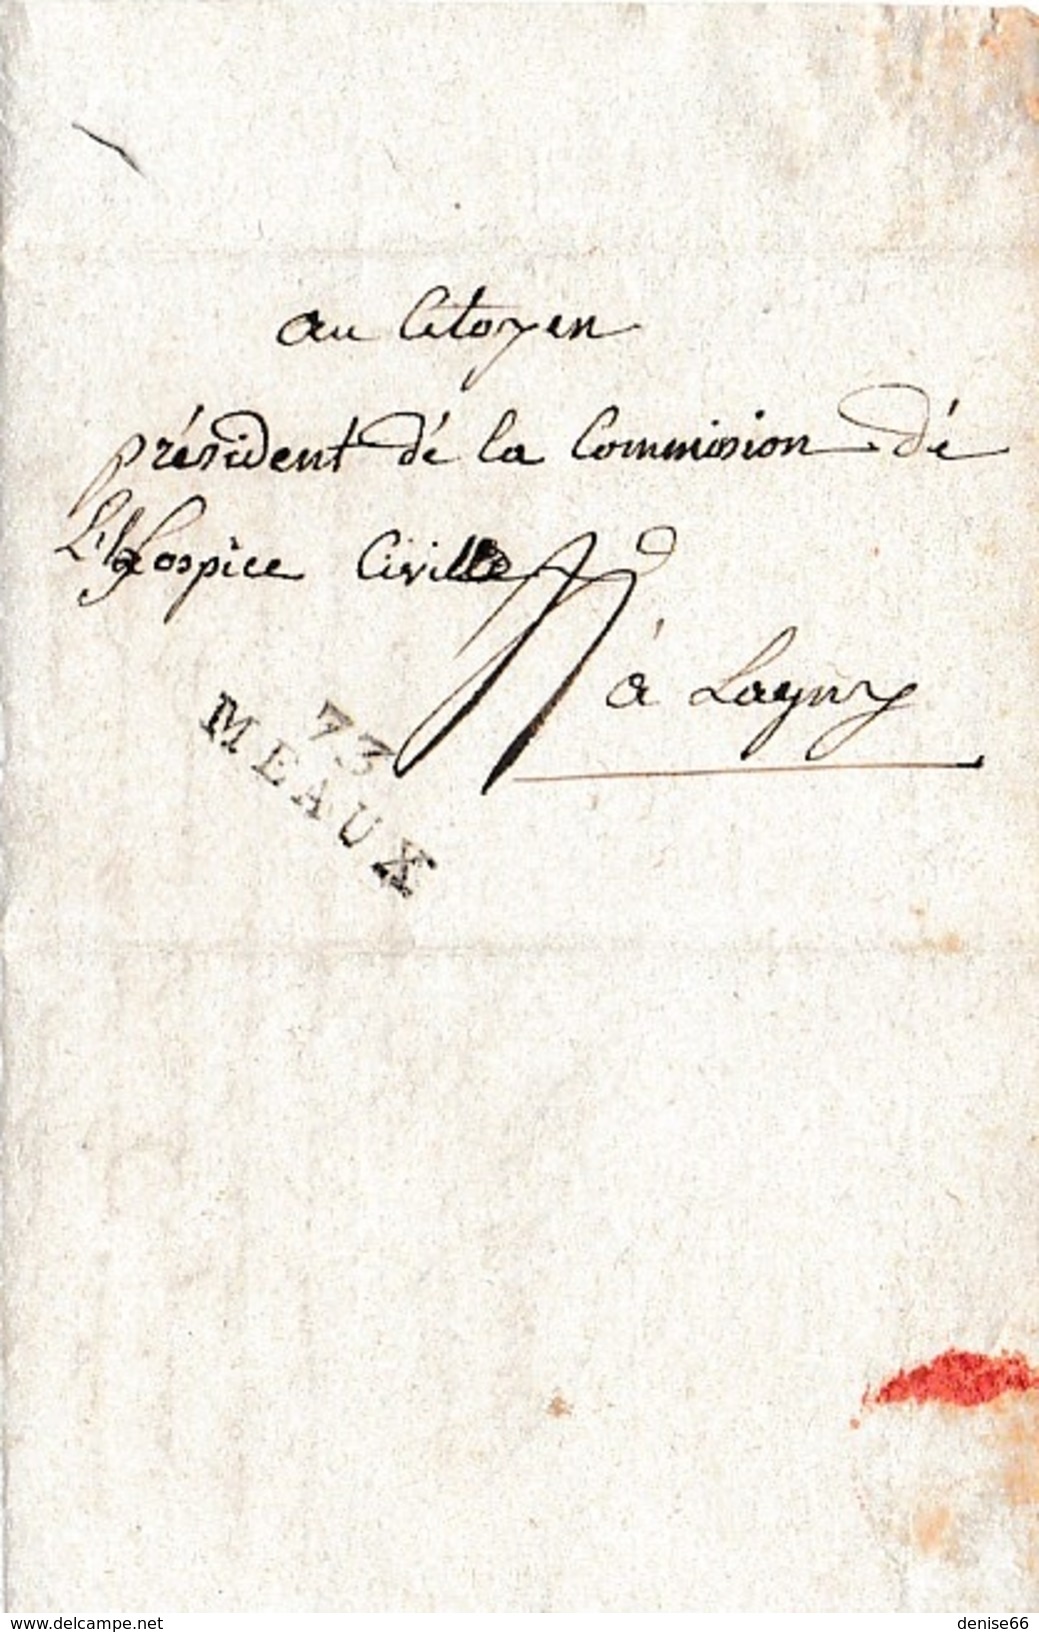 au Citoyen
président dé la Commission dé
L'hospice Civille
à Lagny
73
MEAUX
www.delcampe.net
denise66